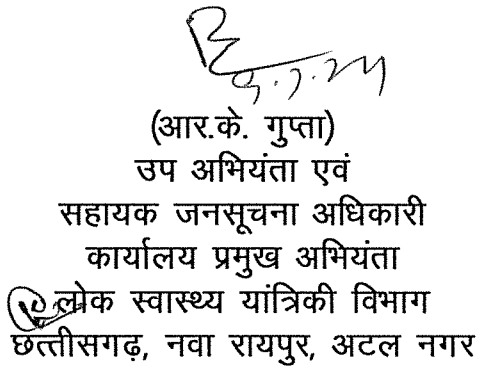 9.7.24
(आर.के. गुप्ता)
उप अभियंता एवं
सहायक जनसूचना अधिकारी
कार्यालय प्रमुख अभियंता
लोक स्वास्थ्य यांत्रिकी विभाग
छत्तीसगढ़, नवा रायपुर, अटल नगर